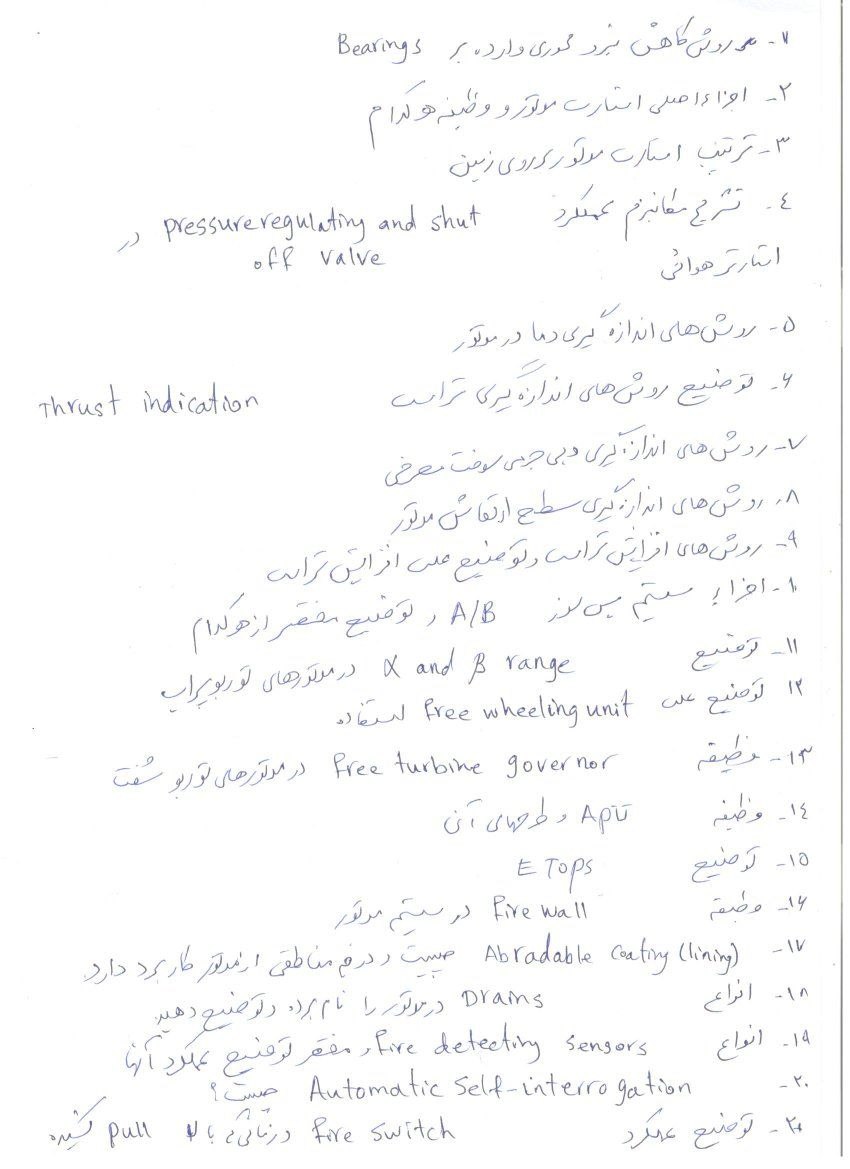 ۱- روش کاهش نیرو محوری وارده بر Bearings
۲- اجزاء اصلی استارت موتور و وظیفه هر کدام
۳- ترتیب استارت موتور بر روی زمین
٤- تشریح مکانیزم عملکرد pressure regulating and shut در
off valve استارتر هوائی
۵- روش های اندازه گیری دما در موتور
۶- توضیح روش های اندازه گیری تراست Thrust indication
۷- روش های اندازه گیری دبی جرمی سوخت مصرفی
۸- روش های اندازه گیری سطح ارتعاش موتور
۹- روش های افزایش تراست و توضیح علت افزایش تراست
۱۰- اجزاء سیستم پس سوز A/B و توضیح مختصر از هر کدام
۱۱- توضیح α and β range در موتورهای توربوپراپ
۱۲ توضیح علت استفاده free wheeling unit
۱۳- وظیفه free turbine governor در موتورهای توربو شفت
۱٤- وظیفه APU و طرحهای آن
۱۵- توضیح ETOPS
۱۶- وظیفه fire wall در سیستم موتور
۱۷- Abradable coating (lining) چیست و در چه مناطقی از موتور کاربرد دارد
۱۸- انواع Drains در موتور را نام برده و توضیح دهید
۱۹- انواع fire detecting sensors و مختصر توضیح عملکرد آنها
۲۰- Automatic self-interrogation چیست؟
۲۰- توضیح عملکرد fire switch در زمانی که بالا pull کشیده